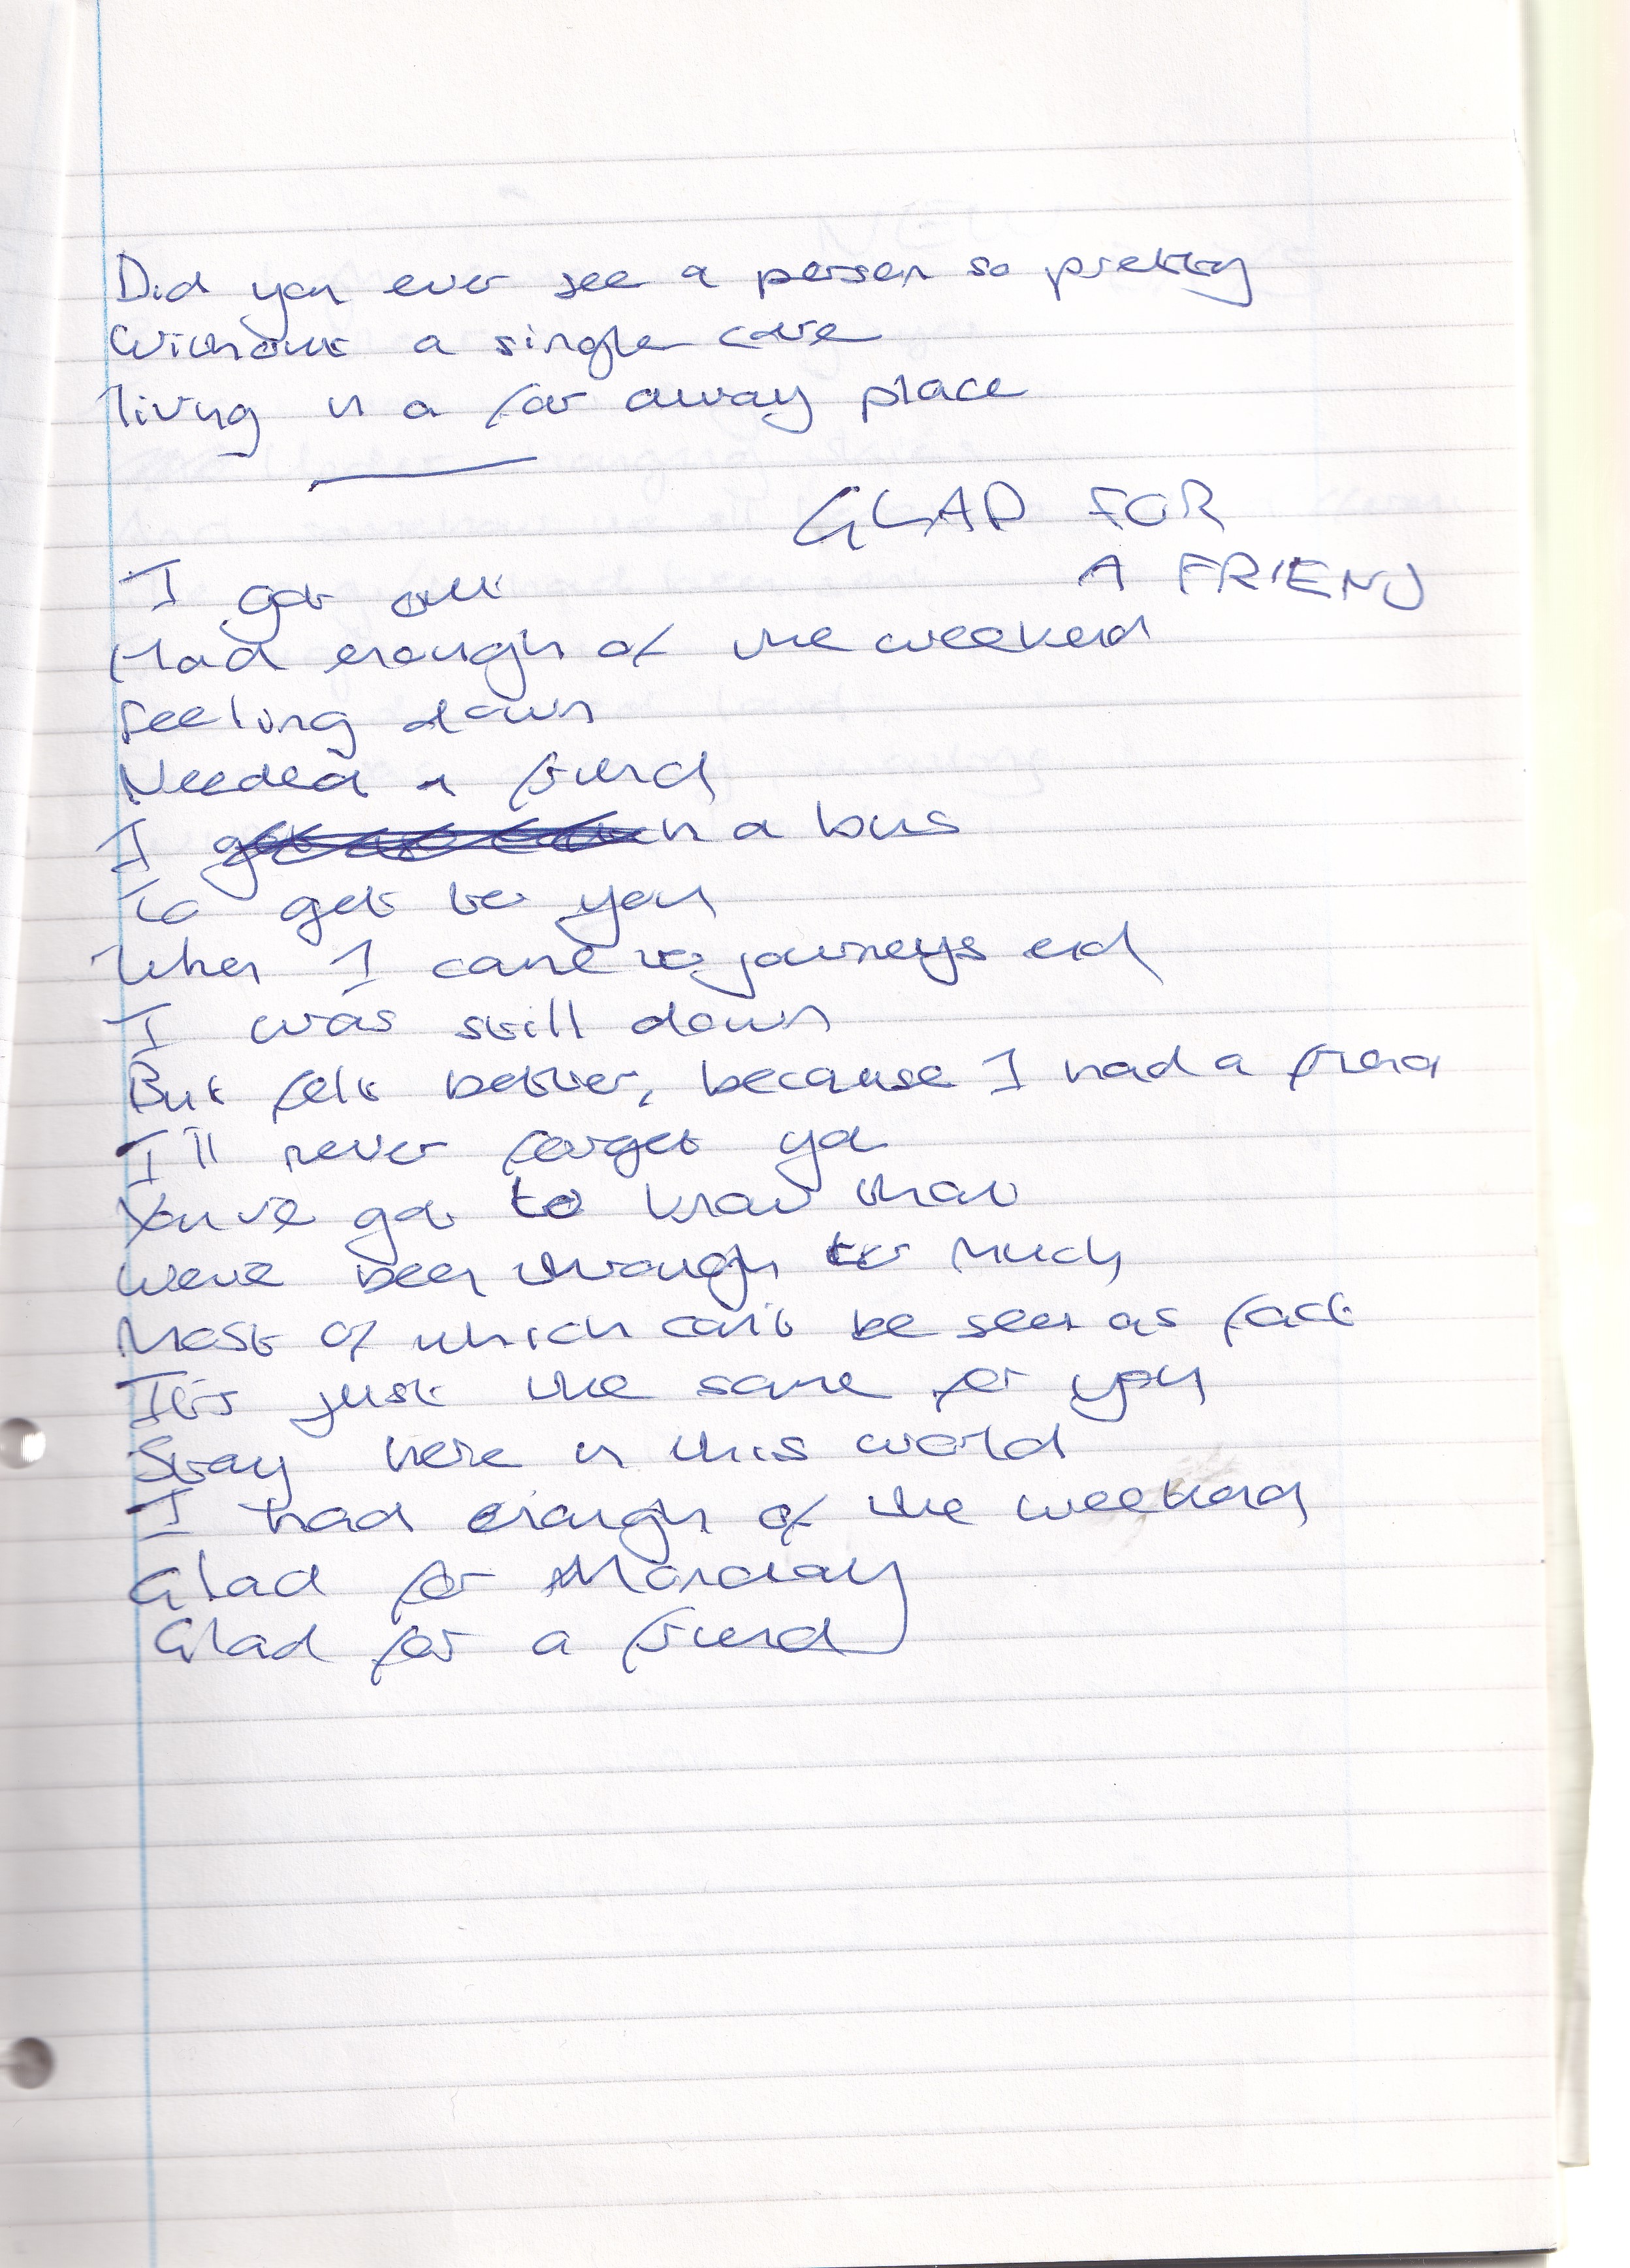 Did you ever see a person so pretty
Without a single care
living in a far away place
GLAD FOR
A FRIEND
I got out
Had enough of the weekend
feeling down
Needed a friend
I in a bus
To get to you
When I came to journeys end
I was still down
But felt better, because I had a friend
I'll never forget ya
You've got to know that
weve been through to much
Most of which can't be seen as fact
It's just the same for you
Stay here in this world
I had enough of the weekend
Glad for Monday
Glad for a friend